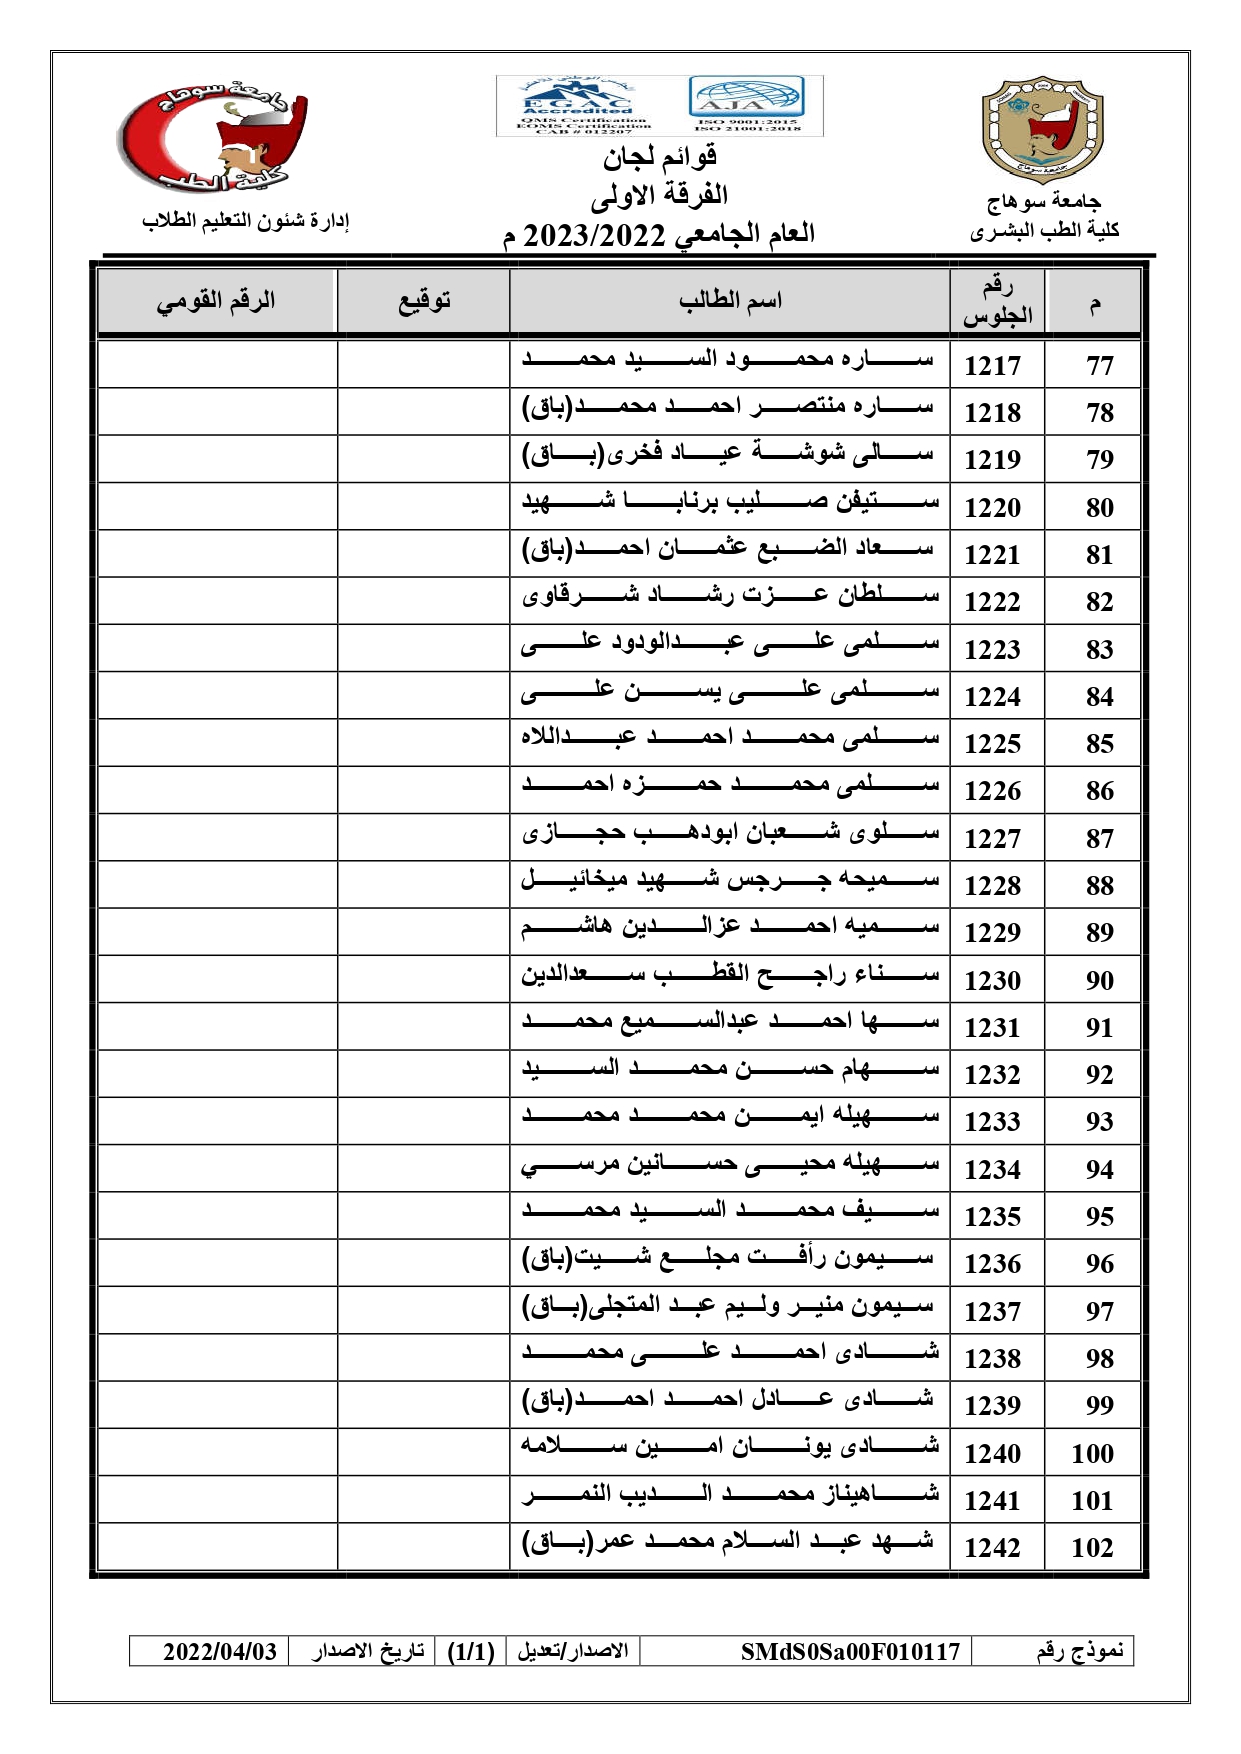 جامعة سوهاج
كلية الطب البشرى
EGAC
Accredited
QMS Certification
EOMS Certification
CAB # 012207
AJA
ISO 9001:2015
ISO 21001:2018
قوائم لجان
الفرقة الاولى
العام الجامعي 2023/2022 م
جامعة سوهاج
كلية الطب
إدارة شئون التعليم الطلاب
م رقم الجلوس اسم الطالب توقيع الرقم القومي
77 1217 ساره محمود السيد محمد
78 1218 ساره منتصر احمد محمد(باق)
79 1219 سالى شوشة عياد فخرى(باق)
80 1220 ستيفن صليب برنابا شهيد
81 1221 سعاد الضبع عثمان احمد(باق)
82 1222 سلطان عزت رشاد شرقاوى
83 1223 سلمى على عبدالودود على
84 1224 سلمى على يسن على
85 1225 سلمى محمد احمد عبداللاه
86 1226 سلمى محمد حمزه احمد
87 1227 سلوى شعبان ابودهب حجازى
88 1228 سميحه جرجس شهيد ميخائيل
89 1229 سميه احمد عزالدين هاشم
90 1230 سناء راجح القطب سعدالدين
91 1231 سها احمد عبدالسميع محمد
92 1232 سهام حسن محمد السيد
93 1233 سهيله ايمن محمد محمد
94 1234 سهيله محيى حسانين مرسي
95 1235 سيف محمد السيد محمد
96 1236 سيمون رأفت مجلع شيت(باق)
97 1237 سيمون منير وليم عبد المتجلى(باق)
98 1238 شادى احمد على محمد
99 1239 شادى عادل احمد احمد(باق)
100 1240 شادى يونان امين سلامه
101 1241 شاهيناز محمد الديب النمر
102 1242 شهد عبد السلام محمد عمر(باق)
نموذج رقم SMdS0Sa00F010117 الاصدار/تعديل (1/1) تاريخ الاصدار 2022/04/03